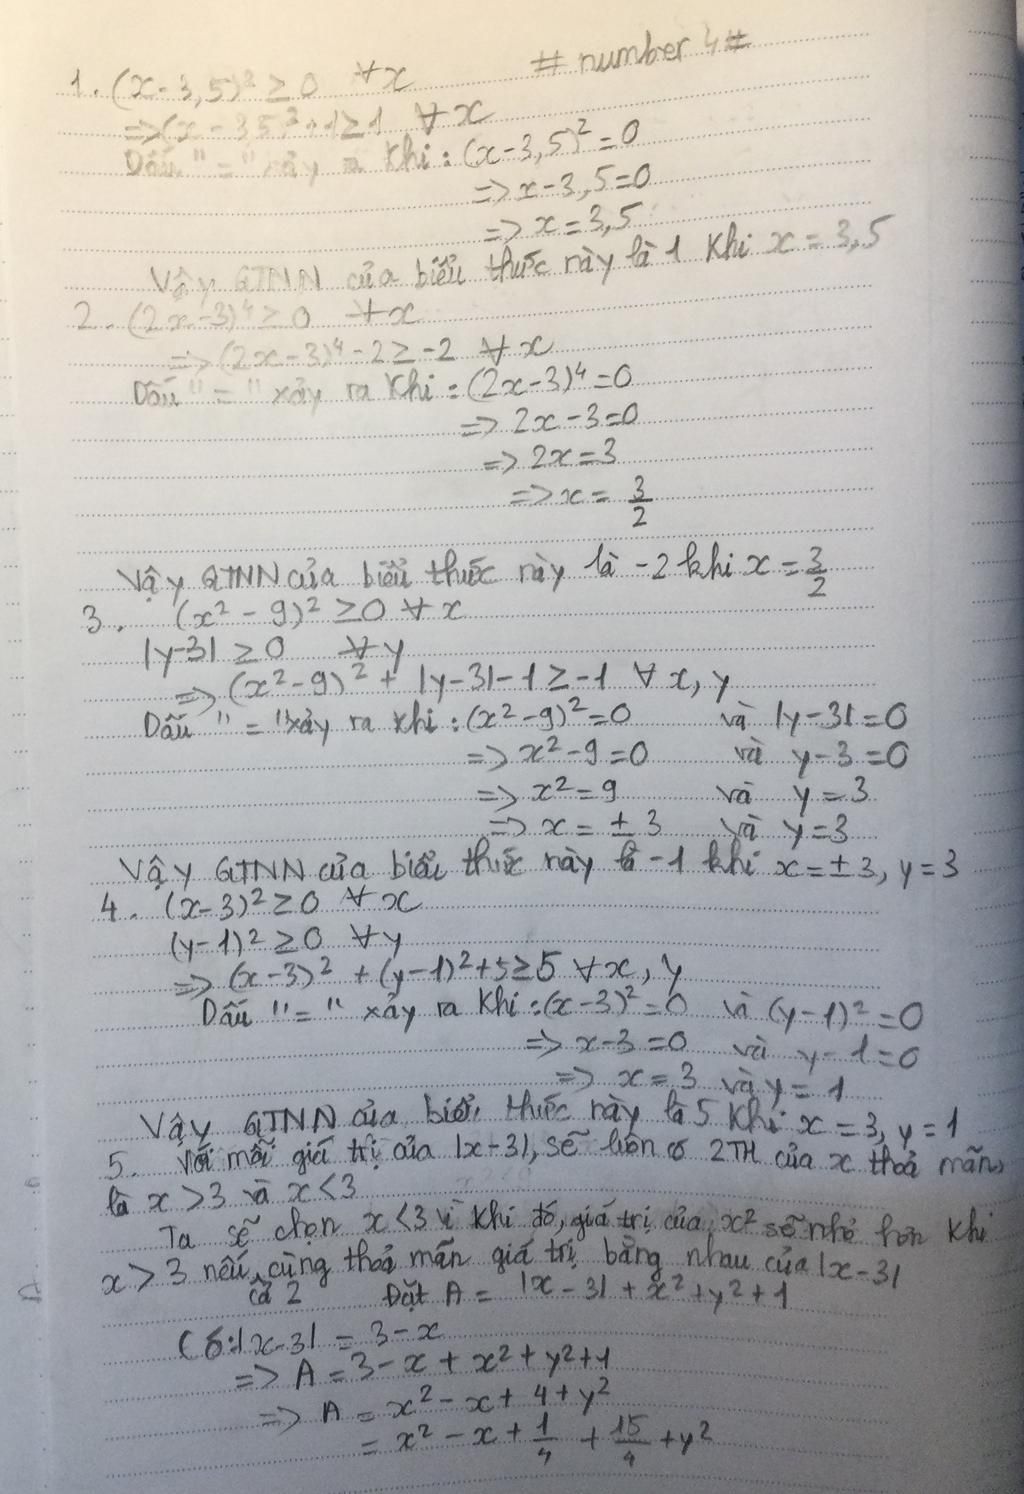 # number 4 #
1. (x-3,5)² ≥ 0 ∀x
=> (x-3,5)² + 1 ≥ 1 ∀x
Dấu "=" xảy ra khi: (x-3,5)² = 0
=> x-3,5=0
=> x = 3,5
Vậy GTNN của biểu thức này là 1 khi x = 3,5
2. (2x-3)⁴ ≥ 0 ∀x
=> (2x-3)⁴ - 2 ≥ -2 ∀x
Dấu "=" xảy ra khi: (2x-3)⁴ = 0
=> 2x-3=0
=> 2x=3
=> x = 3/2
Vậy GTNN của biểu thức này là -2 khi x = 3/2
3. (x² - 9)² ≥ 0 ∀x
|y-3| ≥ 0 ∀y
=> (x²-9)² + |y-3| - 1 ≥ -1 ∀x, y
Dấu "=" xảy ra khi: (x²-9)² = 0 và |y-3| = 0
=> x²-9=0 và y-3=0
=> x² = 9 và y = 3
=> x = ±3 và y = 3
Vậy GTNN của biểu thức này là -1 khi x = ±3, y = 3
4. (x-3)² ≥ 0 ∀x
(y-1)² ≥ 0 ∀y
=> (x-3)² + (y-1)² + 5 ≥ 5 ∀x, y
Dấu "=" xảy ra khi: (x-3)² = 0 và (y-1)² = 0
=> x-3 = 0 và y-1=0
=> x = 3 và y = 1
Vậy GTNN của biểu thức này là 5 khi x = 3, y = 1
5. Với mỗi giá trị của |x-3|, sẽ luôn có 2TH của x thoả mãn,
là x > 3 và x < 3
Ta sẽ chọn x < 3 vì khi đó, giá trị của x² sẽ nhỏ hơn khi
x > 3 nếu cả 2 cùng thoả mãn giá trị bằng nhau của |x-3|
Đặt A = |x-3| + x² + y² + 1
Có: |x-3| = 3-x
=> A = 3-x + x² + y² + 1
=> A = x² - x + 4 + y²
= x² - x + 1/4 + 15/4 + y²